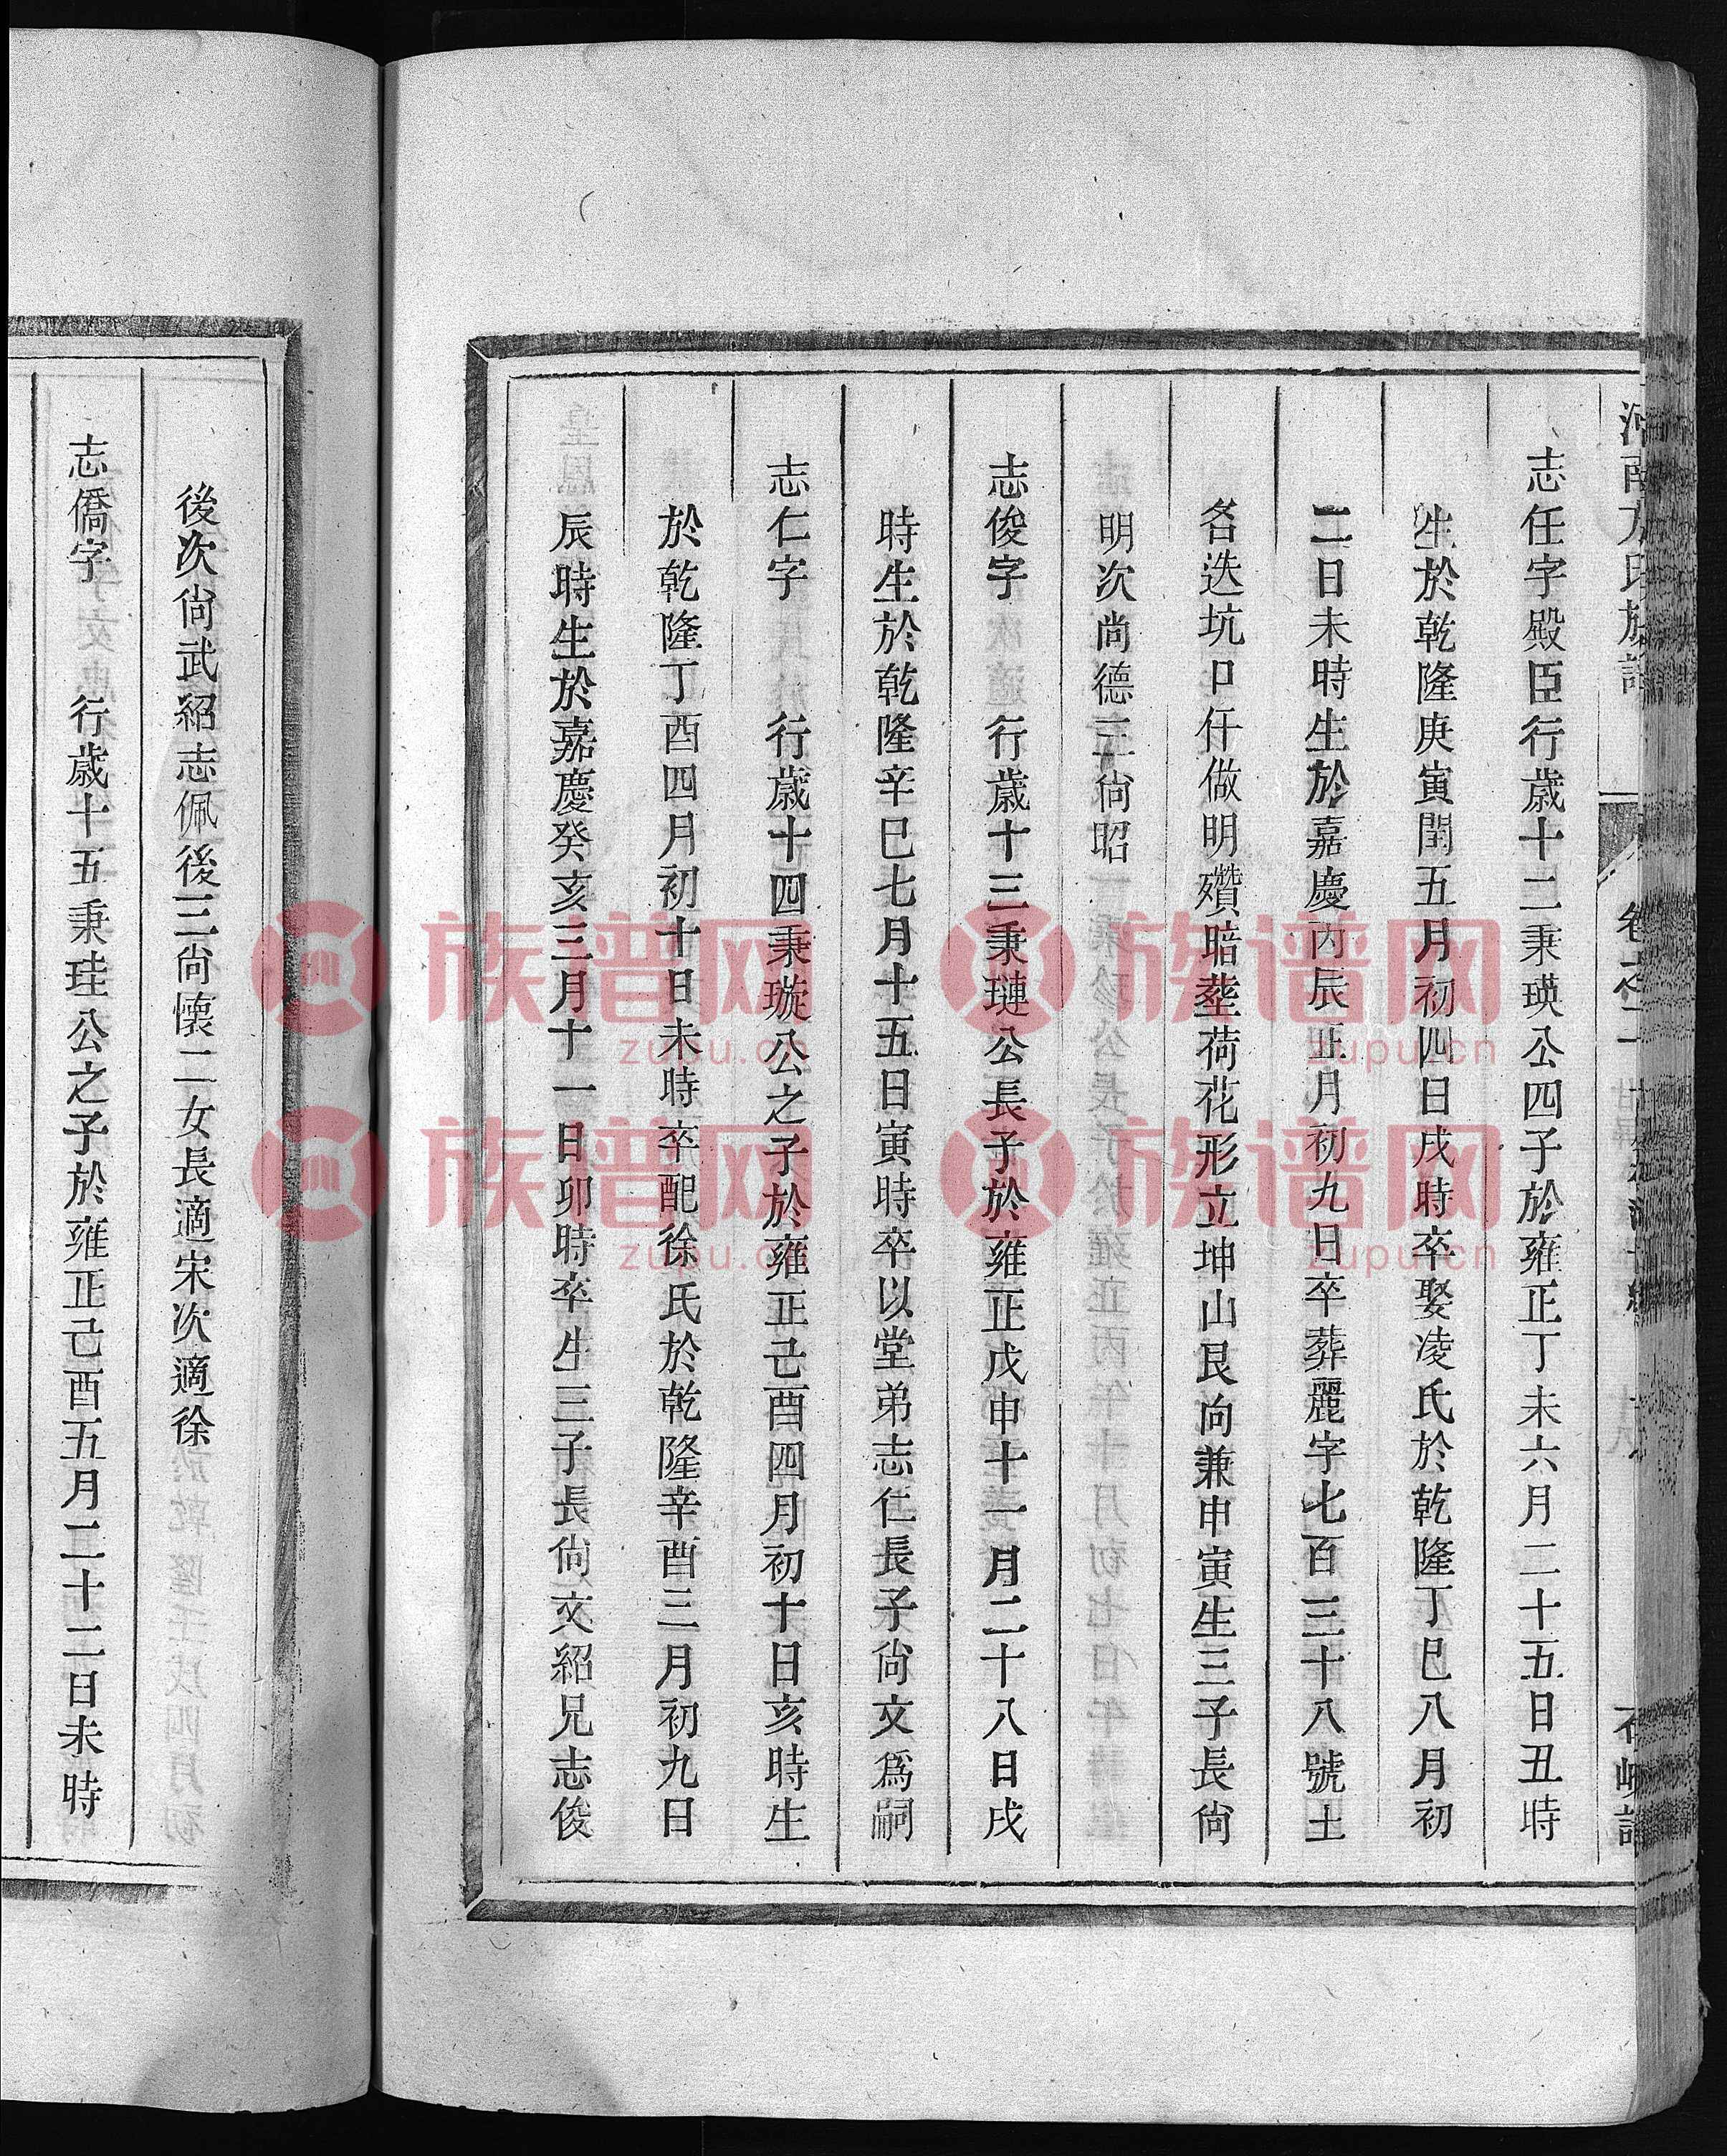 志任字殿臣行歲十二秉瑛公四子於雍正丁未六月二十五日丑時
生於乾隆庚寅閏五月初四日戌時卒娶凌氏於乾隆丁巳八月初
二日未時生於嘉慶丙辰正月初九日卒葬麗字七百三十八號土
名迭坑口仟做明殯暗塟荷花形立坤山艮向兼申寅生三子長尙
明次尚德三尙昭
志俊字 行歲十三秉璉公長子於雍正戊申十一月二十八日戌
時生於乾隆辛巳七月十五日寅時卒以堂弟志仁長子尙文爲嗣
志仁字 行歲十四秉璇公之子於雍正己酉四月初十日亥時生
於乾隆丁酉四月初十日未時卒配徐氏於乾隆辛酉三月初九日
辰時生於嘉慶癸亥三月十一日卯時卒生三子長尙文紹兄志俊
後次尙武紹志佩後三尙懷二女長適宋次適徐
志僑字 行歲十五秉珪公之子於雍正己酉五月二十二日未時
族谱网
zupu.cn
族谱网
zupu.cn
族谱网
zupu.cn
族谱网
zupu.cn